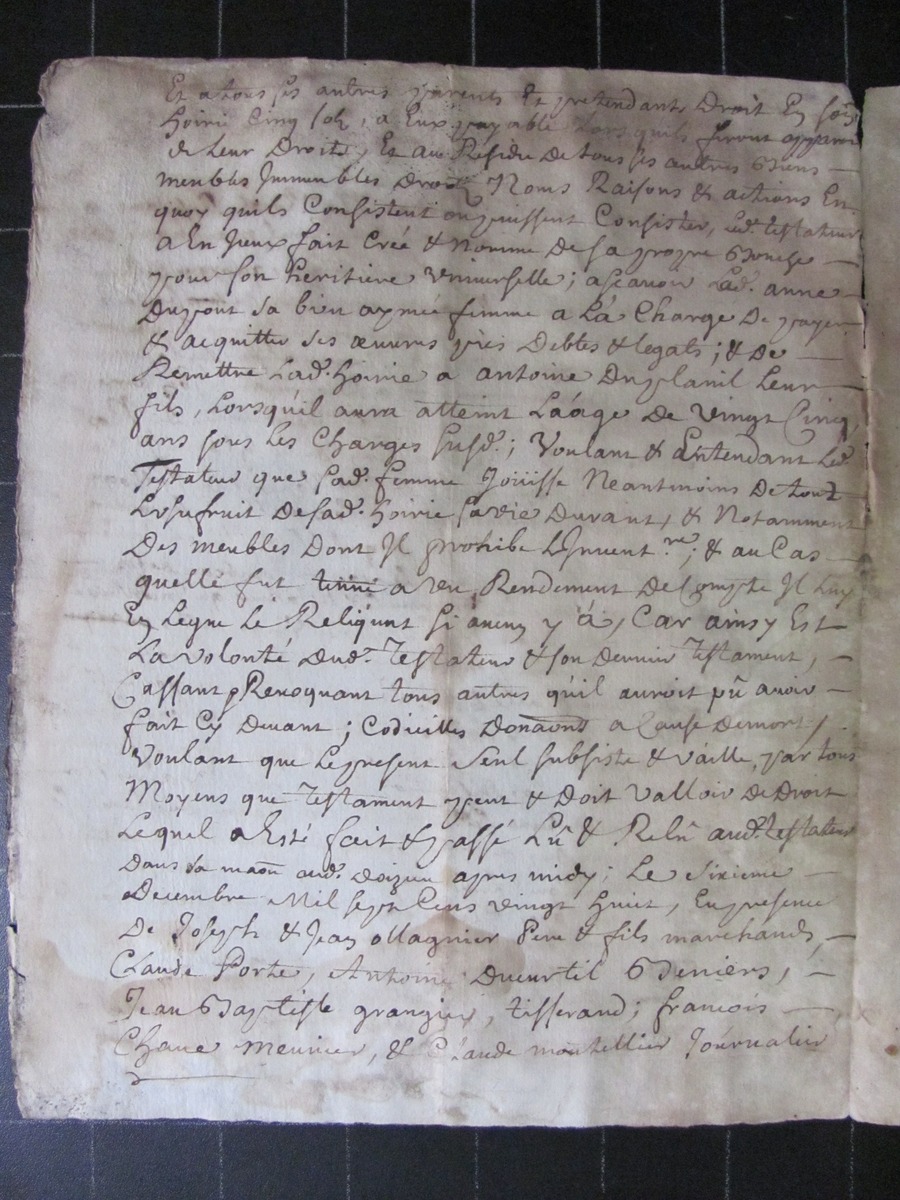 Et a tous ses autres parents Et pretendants Droit En son
hoirie Cinq sols, a Eux payable Lorsquils feront apparoir
de Leur Droits, Et au Residu De tous ses autres Biens
meubles Jmmeubles Droits Noms Raisons & actions En
quoy quils Consistent ou puissent Consister, Led. testateur
a En Jceux fait Creé & Nommé De sa propre Bouche
pour son heritiere Vniuerselle; ascauoir Lad. anne
Dupont sa bien aymée femme a La Charge De payer
& acquitter ses œuures pies Debtes & legats; & De
Remettre Lad. hoirie a antoine Duplanil Leur
fils, Lorsqu'il aura atteint Laáge De Vingt Cinq
ans sous Les Charges susd.; Voulant & Entendant Led.
Testateur que sad. femme Joüisse Neantmoins De tout
Lvsufruit De sad. hoirie sa vie Durant, & Notamment
Des meubles Dont Jl prohibe LJnuent.re; & au Cas
quelle fut a vn Rendement De Compte Jl Luy
En Legue Le Reliquat si aucun y á, Car ainsy Est
La volonté Dud. Testateur & son Dernier Testament,
Cassant Reuoquant tous autres qu'il auroit pû auoir
fait Cy Deuant; Codicilles Donaôns a Cause De mort,
Voulant que Le present Seul subsiste & Vaille par tous
Moyens que Testament peut & Doit Valloir De Droit
Lequel a Esté fait & passé Lû & Relû aud. testateur
Dans sa maôn aud. Doizieu apres midy; Le Sixieme
Decembre Mil sept Cens vingt huict, En presence
De Joseph & Jean ollagnier Pere & fils marchands,
Claude Porte, Antoine Ducurtil Beniers,
Jean Baptiste grangier, tisserand; francois
Chaue meunier, & Claude montellier Journalier